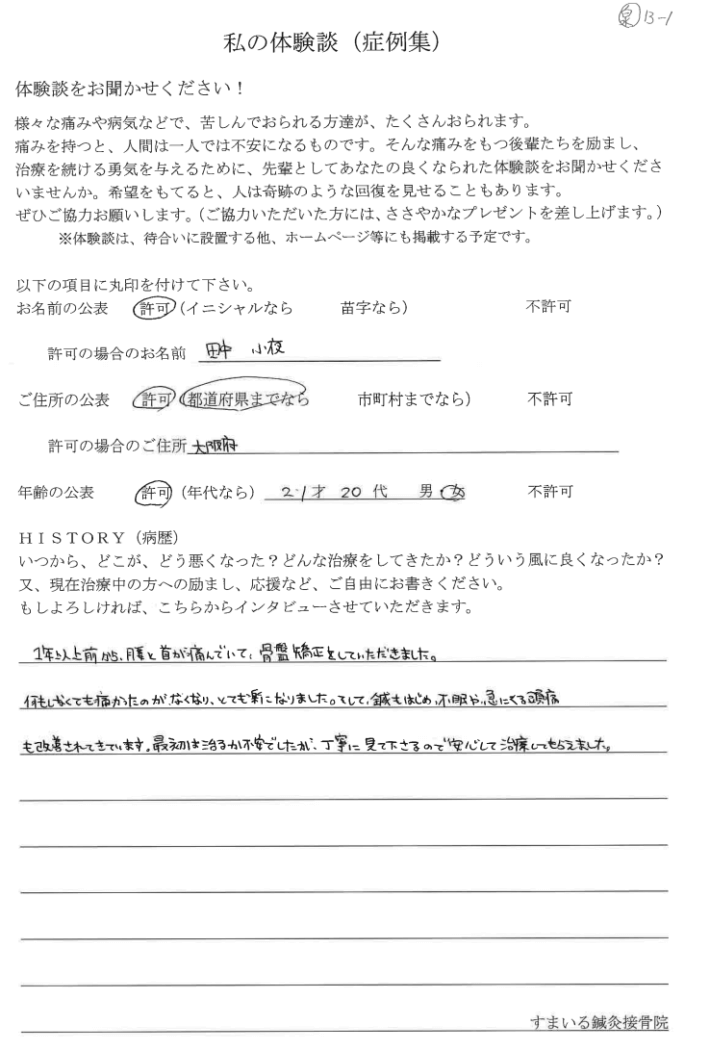 泉 13-1
私の体験談（症例集）
体験談をお聞かせください！
様々な痛みや病気などで、苦しんでおられる方達が、たくさんおられます。
痛みを持つと、人間は一人では不安になるものです。そんな痛みをもつ後輩たちを励まし、
治療を続ける勇気を与えるために、先輩としてあなたの良くなられた体験談をお聞かせくださ
いませんか。希望をもてると、人は奇跡のような回復を見せることもあります。
ぜひご協力お願いします。（ご協力いただいた方には、ささやかなプレゼントを差し上げます。）
※体験談は、待合いに設置する他、ホームページ等にも掲載する予定です。
以下の項目に丸印を付けて下さい。
お名前の公表 許可（イニシャルなら 苗字なら） 不許可
許可の場合のお名前 田中 小夜
ご住所の公表 許可（都道府県までなら 市町村までなら） 不許可
許可の場合のご住所 大阪府
年齢の公表 許可（年代なら） 21才 20代 男・女 不許可
ＨＩＳＴＯＲＹ（病歴）
いつから、どこが、どう悪くなった？どんな治療をしてきたか？どういう風に良くなったか？
又、現在治療中の方への励まし、応援など、ご自由にお書きください。
もしよろしければ、こちらからインタビューさせていただきます。
1年以上前から、腰と首が痛んでいて、骨盤矯正をしていただきました。
何もしなくても痛かったのがなくなり、とても楽になりました。そして、鍼もはじめ、不眠や、急にくる頭痛
も改善されてきています。最初は治るか不安でしたが、丁寧に見て下さるので安心して治療してもらえました。
すまいる鍼灸接骨院